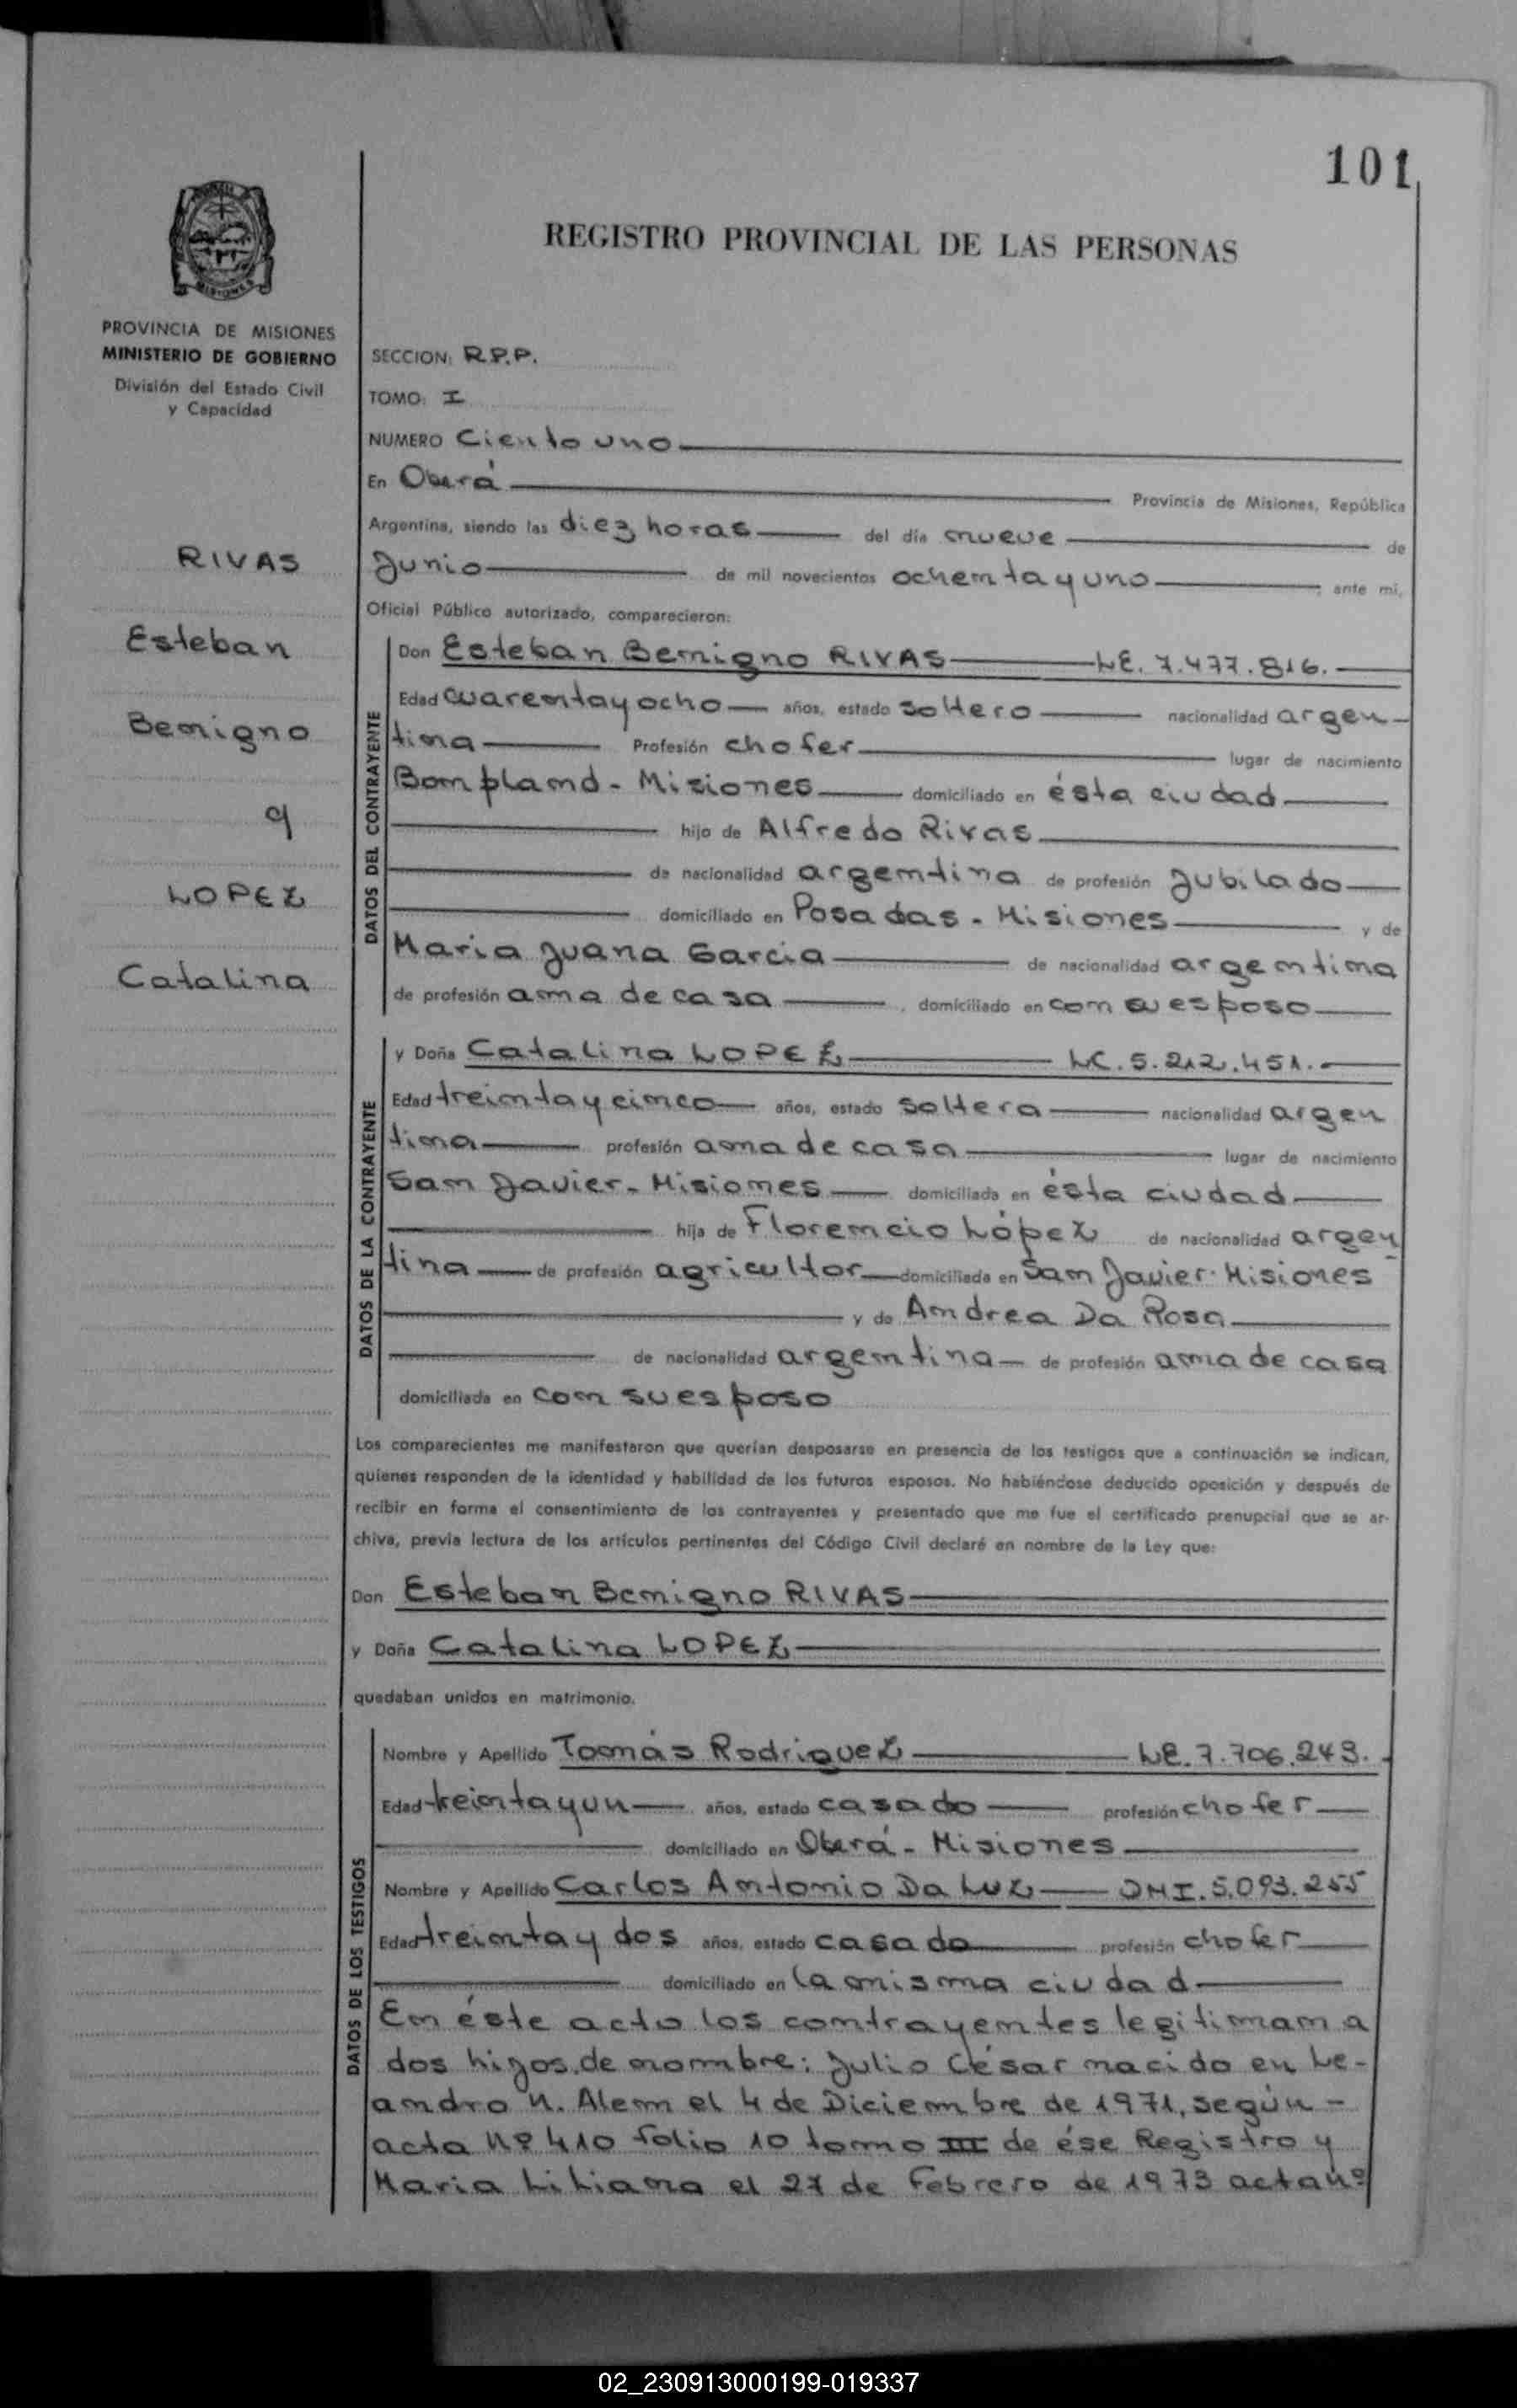 101
REGISTRO PROVINCIAL DE LAS PERSONAS
MISIONES
PROVINCIA DE MISIONES
MINISTERIO DE GOBIERNO
División del Estado Civil
y Capacidad
RIVAS
Esteban
Benigno
y
LOPEZ
Catalina
SECCION: R.P.P.
TOMO: I
NUMERO Ciento uno
En Oberá Provincia de Misiones, República
Argentina, siendo las diez horas del día nueve de
Junio de mil novecientos ochenta y uno, ante mi,
Oficial Público autorizado, comparecieron:
DATOS DEL CONTRAYENTE
Don Esteban Benigno RIVAS LE. 7.477.816.
Edad cuarenta y ocho años, estado soltero nacionalidad argen-
tina Profesión chofer lugar de nacimiento
Bompland - Misiones domiciliado en ésta ciudad
hijo de Alfredo Rivas
de nacionalidad argentina de profesión Jubilado
domiciliado en Posadas - Misiones y de
Maria Juana Garcia de nacionalidad argentina
de profesión ama de casa, domiciliado en con su esposo
DATOS DE LA CONTRAYENTE
y Doña Catalina LOPEZ LC. 5.212.451.
Edad treinta y cinco años, estado soltera nacionalidad argen
tina profesión ama de casa lugar de nacimiento
San Javier - Misiones domiciliada en ésta ciudad
hija de Florencio López de nacionalidad argen
tina de profesión agricultor domiciliada en San Javier - Misiones
y de Andrea Da Rosa
de nacionalidad argentina de profesión ama de casa
domiciliada en con su esposo
Los comparecientes me manifestaron que querían desposarse en presencia de los testigos que a continuación se indican,
quienes responden de la identidad y habilidad de los futuros esposos. No habiéndose deducido oposición y después de
recibir en forma el consentimiento de los contrayentes y presentado que me fue el certificado prenupcial que se ar-
chiva, previa lectura de los artículos pertinentes del Código Civil declaré en nombre de la Ley que:
Don Esteban Benigno RIVAS
y Doña Catalina LOPEZ
quedaban unidos en matrimonio.
DATOS DE LOS TESTIGOS
Nombre y Apellido Tomás Rodriguez LE. 7.706.243.
Edad treinta y un años, estado casado profesión chofer
domiciliado en Oberá - Misiones
Nombre y Apellido Carlos Antonio Da Luz DNI. 5.093.255
Edad treinta y dos años, estado casado profesión chofer
domiciliado en la misma ciudad
En éste acto los contrayentes legitiman a
dos hijos de nombre: Julio César nacido en Le-
andro N. Alem el 4 de Diciembre de 1971, según -
acta Nº 410 folio 10 tomo III de ése Registro y
Maria Liliana el 27 de Febrero de 1973 acta Nº
02_230913000199-019337